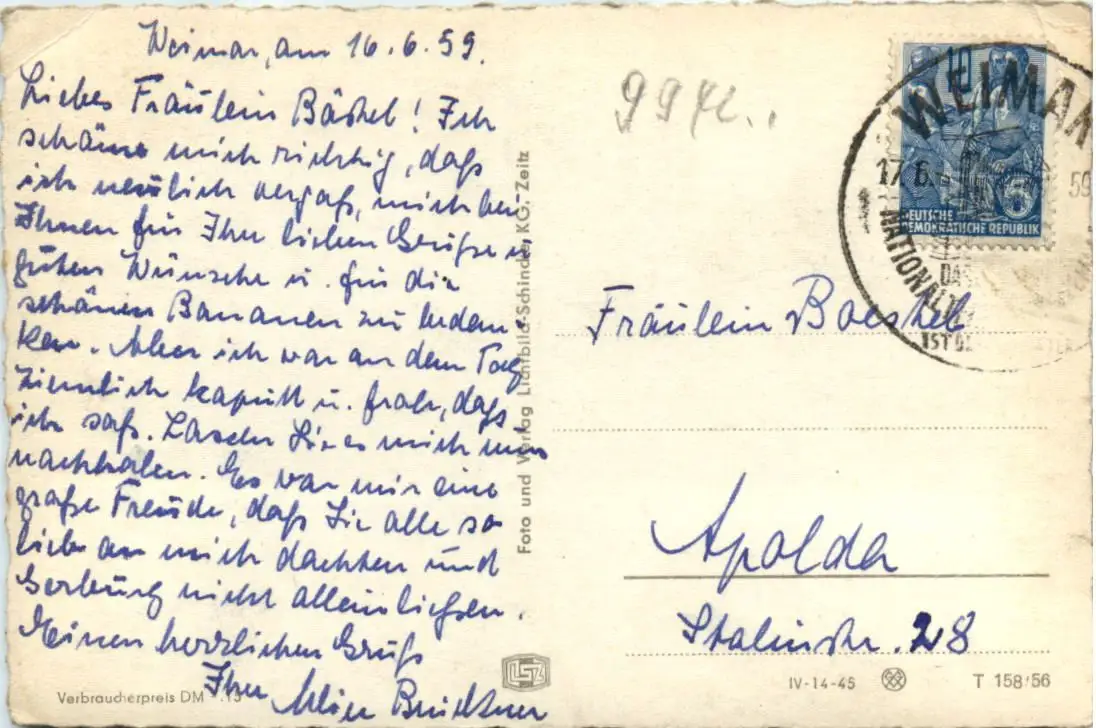 Weimar, am 16.6.59.
Liebes Fräulein Bäschel! Ich
schäme mich richtig, daß
ich neulich vergaß, mich bei
Ihnen für Ihre lieben Grüße u.
guten Wünsche u. für die
schönen Bananen zu bedan-
ken. Aber ich war an dem Tag
ziemlich kaputt u. froh, daß
ich saß. Lassen Sie es mich nun
nachholen. Es war mir eine
große Freude, daß Sie alle so
lieb an mich dachten und
Gerburg nicht allein ließen.
Einen herzlichen Gruß
Ihre
Verbraucherpreis DM -.15
Foto und Verlag Lichtbild-Schincke, K.G. Zeitz
LSZ
10
5
DEUTSCHE
DEMOKRATISCHE REPUBLIK
WEIMAR
17.6. 59
NATIONAL
DAS
IST
Fräulein Baeschel
Apolda
Stalinstr. 28
IV-14-45
T 158/56